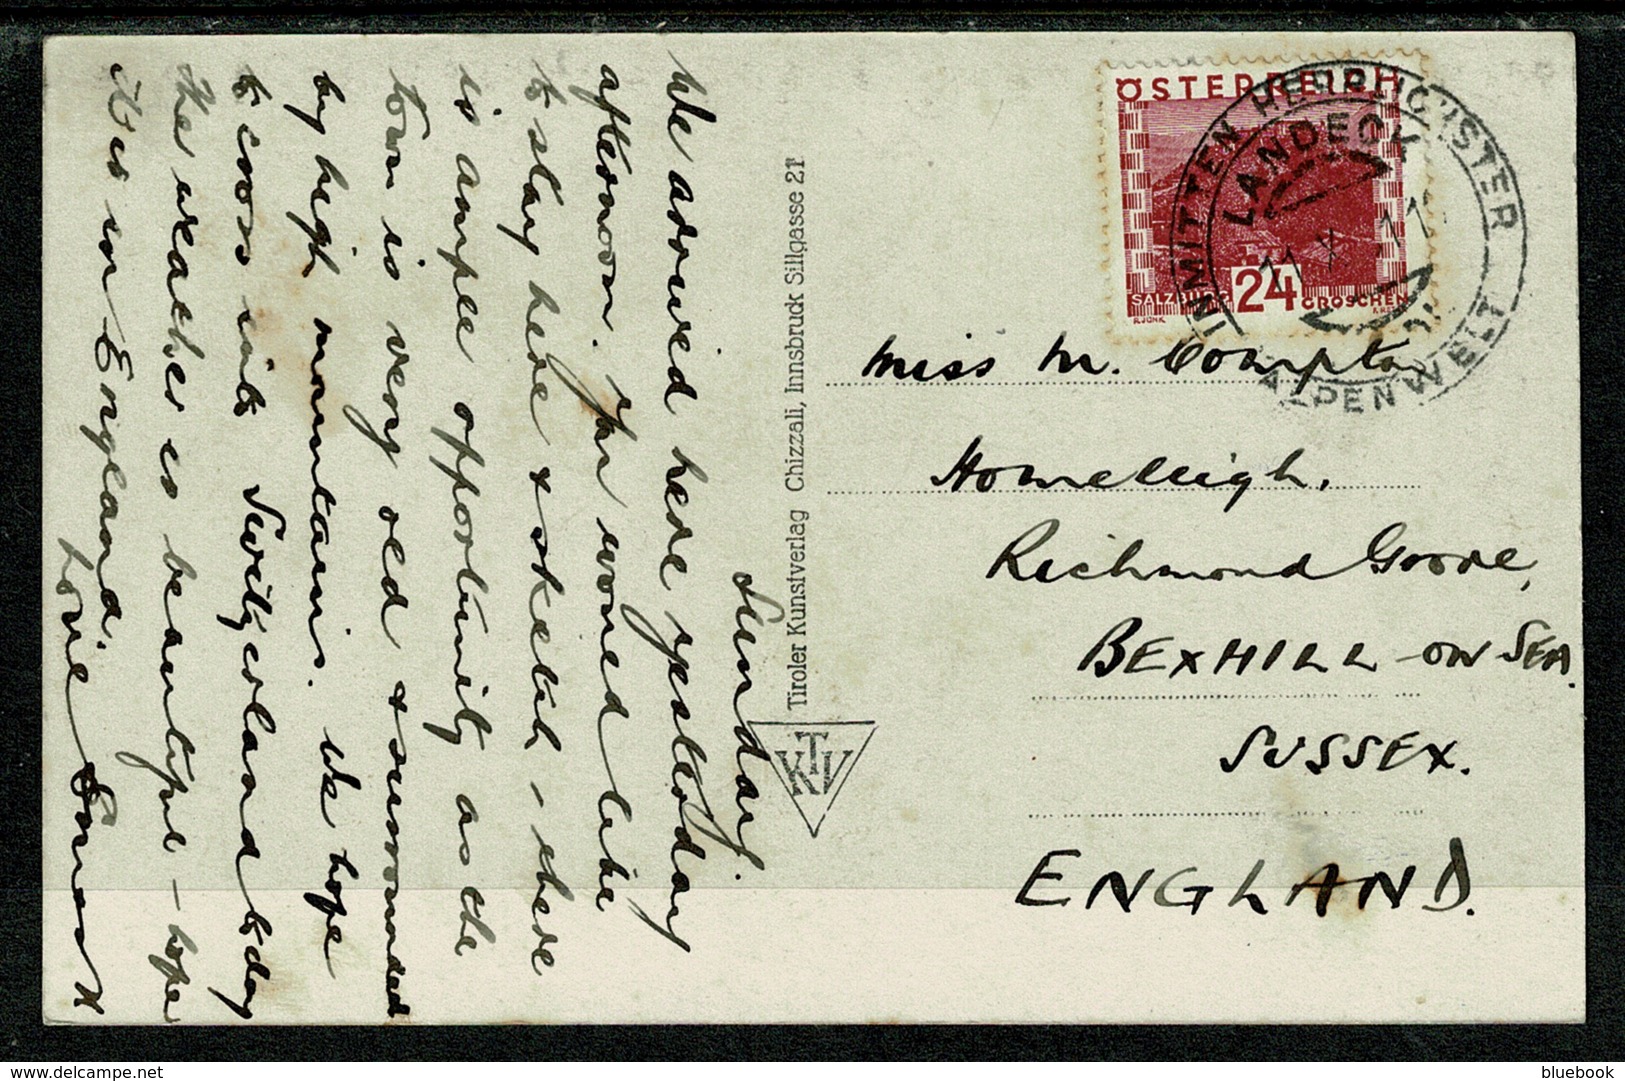 Sunday.
We arrived here yesterday
afternoon. You would like
to stay here & sketch – there
is ample opportunity as the
town is very old & surrounded
by high mountains. We hope
to cross into Switzerland today
The weather is beautiful – hope
it is in England.
Love
Tiroler Kunstverlag Chizzali, Innsbruck Sillgasse 21
KTV
ÖSTERREICH
SALZBURG 24 GROSCHEN
R.JUNK
INMITTEN HERRLICHSTER
ALPENWELT
LANDECK
11 X 11
Miss M. Compton
Homelleigh.
Richmond Grove,
BEXHILL-ON SEA.
SUSSEX.
ENGLAND.
bluebook